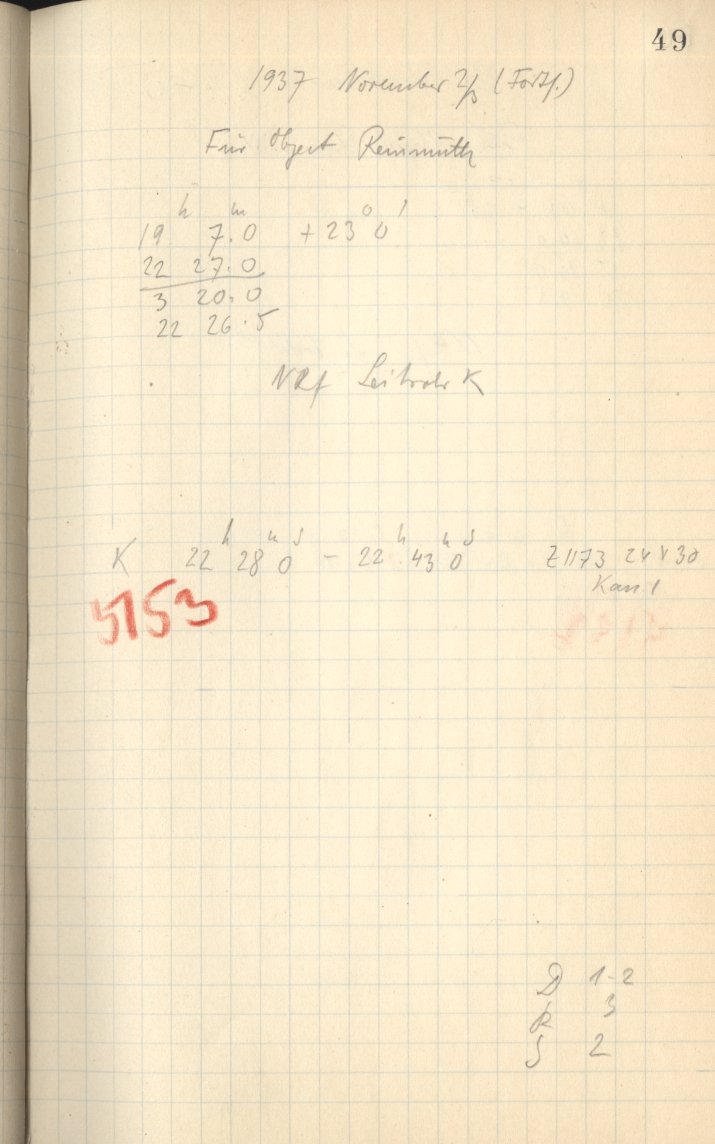 49
1937 November 2/3 (Forts.)
Für Object Reinmuth
h m o '
19 7.0 + 23 0
22 27.0
3 20.0
22 26.5
Leitrohr K
h m s h m s
K 22 28 0 – 22 43 0 Z 1173 24 x 30
Kass. 1
5153
D 1-2
R 3
S 2